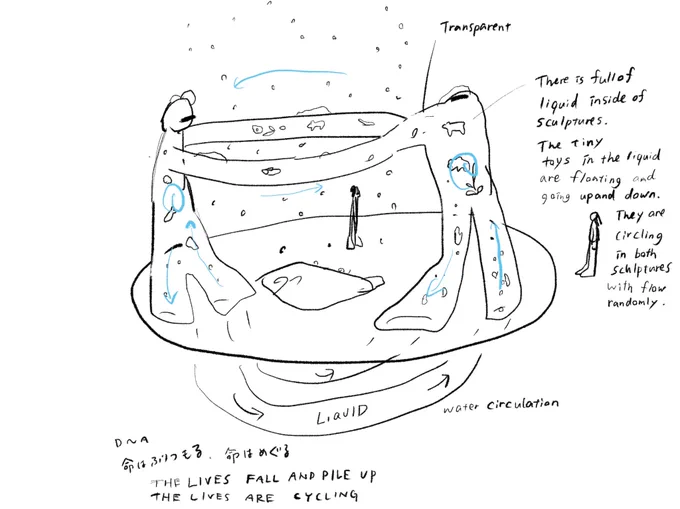 Transparent
There is full of
liquid inside of
sculptures.
The tiny
toys in the liquid
are floating and
going up and down.
They are
circling
in both
schlptures
with flow
randomly.
LIQUID
water circulation
DNA
命はふりつもる、命はめぐる
THE LIVES FALL AND PILE UP
THE LIVES ARE CYCLING